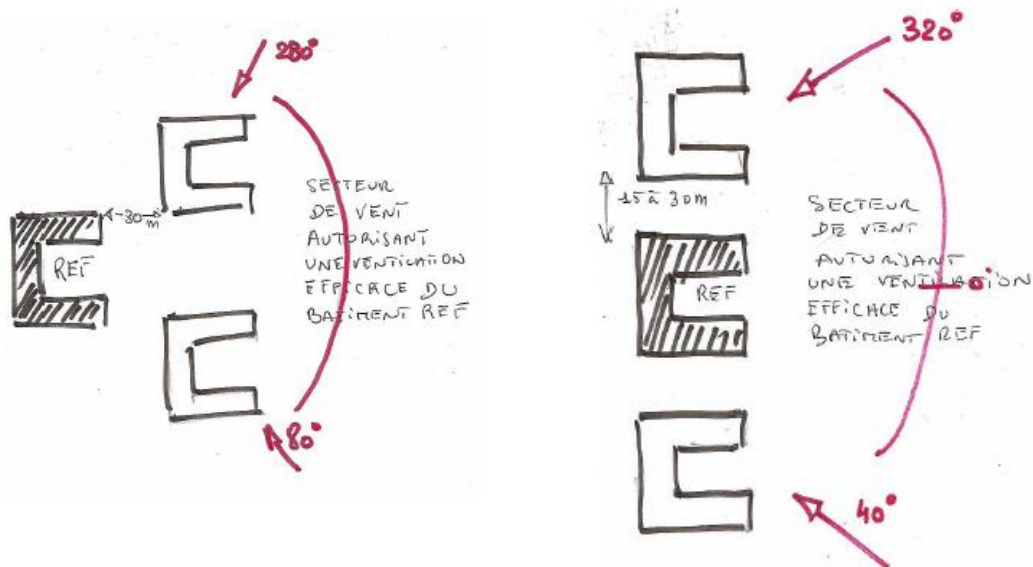 280°
30 m
REF
SECTEUR
DE VENT
AUTORISANT
UNE VENTILATION
EFFICACE DU
BATIMENT REF
80°
320°
15 à 30m
REF
SECTEUR
DE VENT
AUTORISANT
UNE VENTILATION
EFFICACE DU
BATIMENT REF
0°
40°